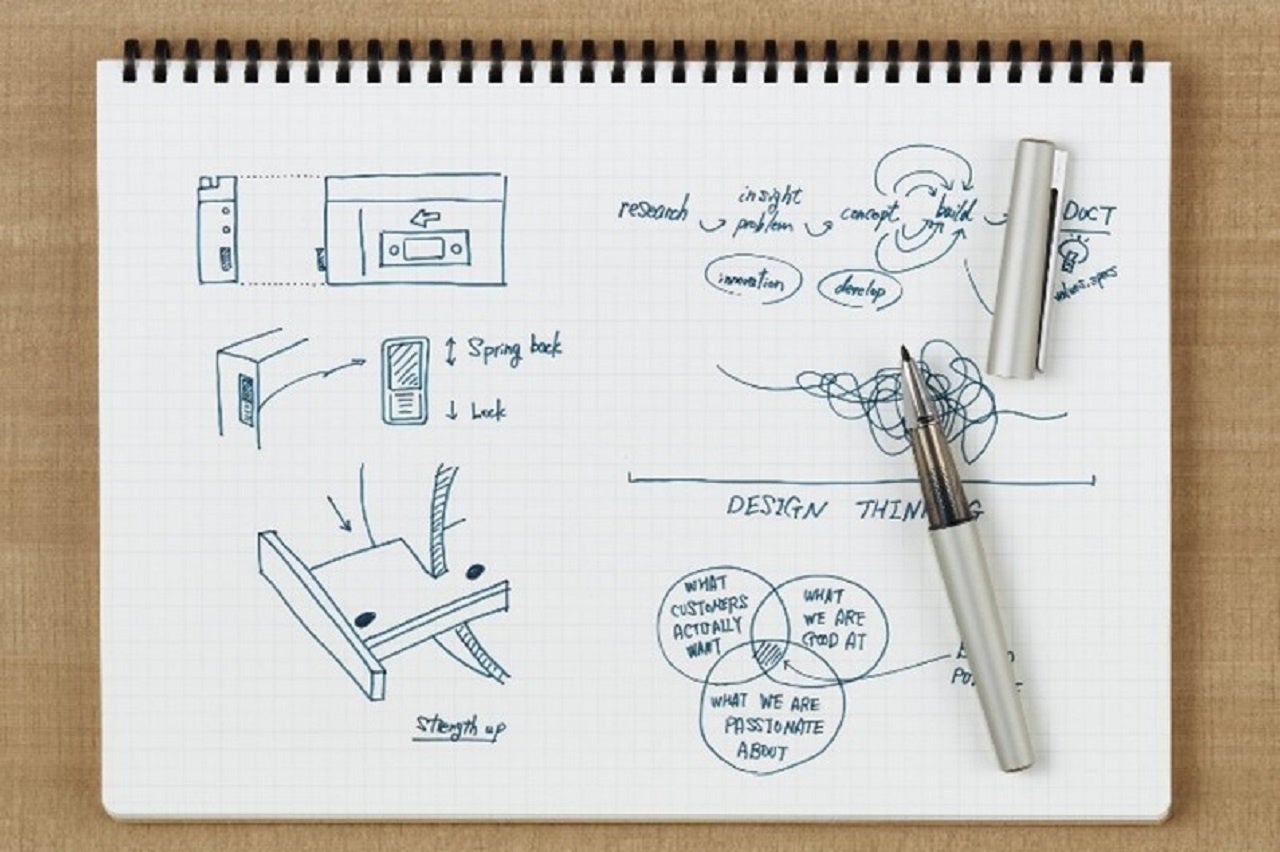 Spring back
Lock
Strength up
research
insight
problem
concept
build
DUCT
values, specs
innovation
develop
DESIGN THIN G
WHAT
CUSTOMERS
ACTUALLY
WANT
WHAT
WE ARE
GOOD AT
WHAT WE ARE
PASSIONATE
ABOUT